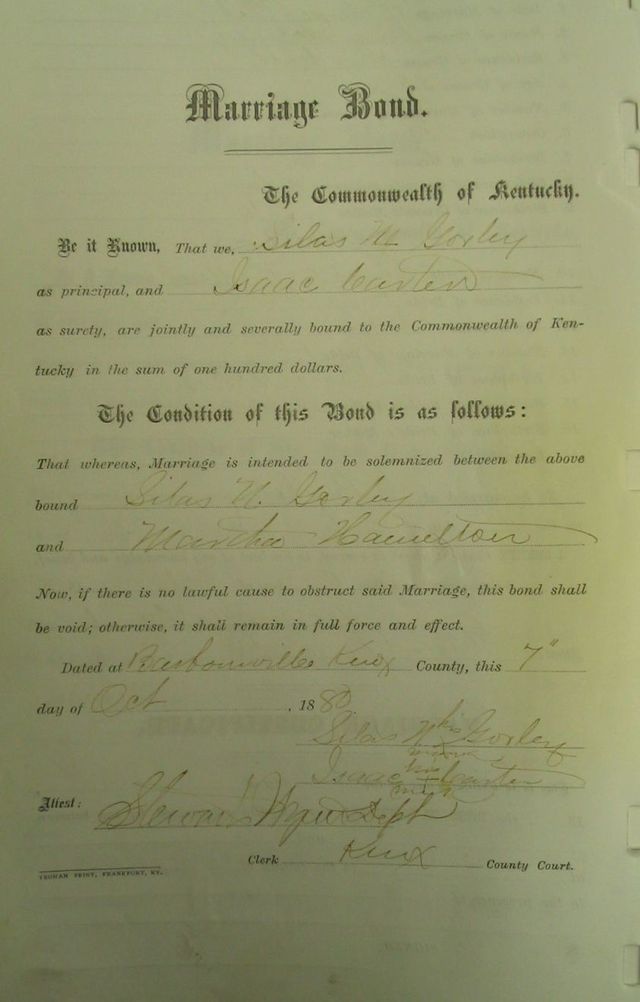 Marriage Bond.
The Commonwealth of Kentucky.
Be it Known, That we, Silas M Gorley
as principal, and Isaac Carter
as surety, are jointly and severally bound to the Commonwealth of Ken-
tucky in the sum of one hundred dollars.
The Condition of this Bond is as follows:
That whereas, Marriage is intended to be solemnized between the above
bound Silas N. Gorley
and Martha Hamilton
Now, if there is no lawful cause to obstruct said Marriage, this bond shall
be void; otherwise, it shall remain in full force and effect.
Dated at Barbourville Knox County, this 7"
day of Oct , 1880
Silas his Gorley
Isaac his Carter
Attest:
Clerk Knox County Court.
YEOMAN PRINT, FRANKFORT, KY.